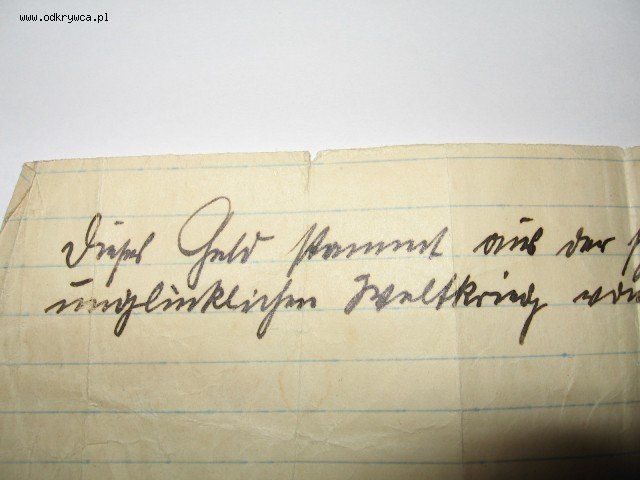 www.odkrywca.pl
Dieses Geld stammt aus der
unglücklichen Weltkrieg von